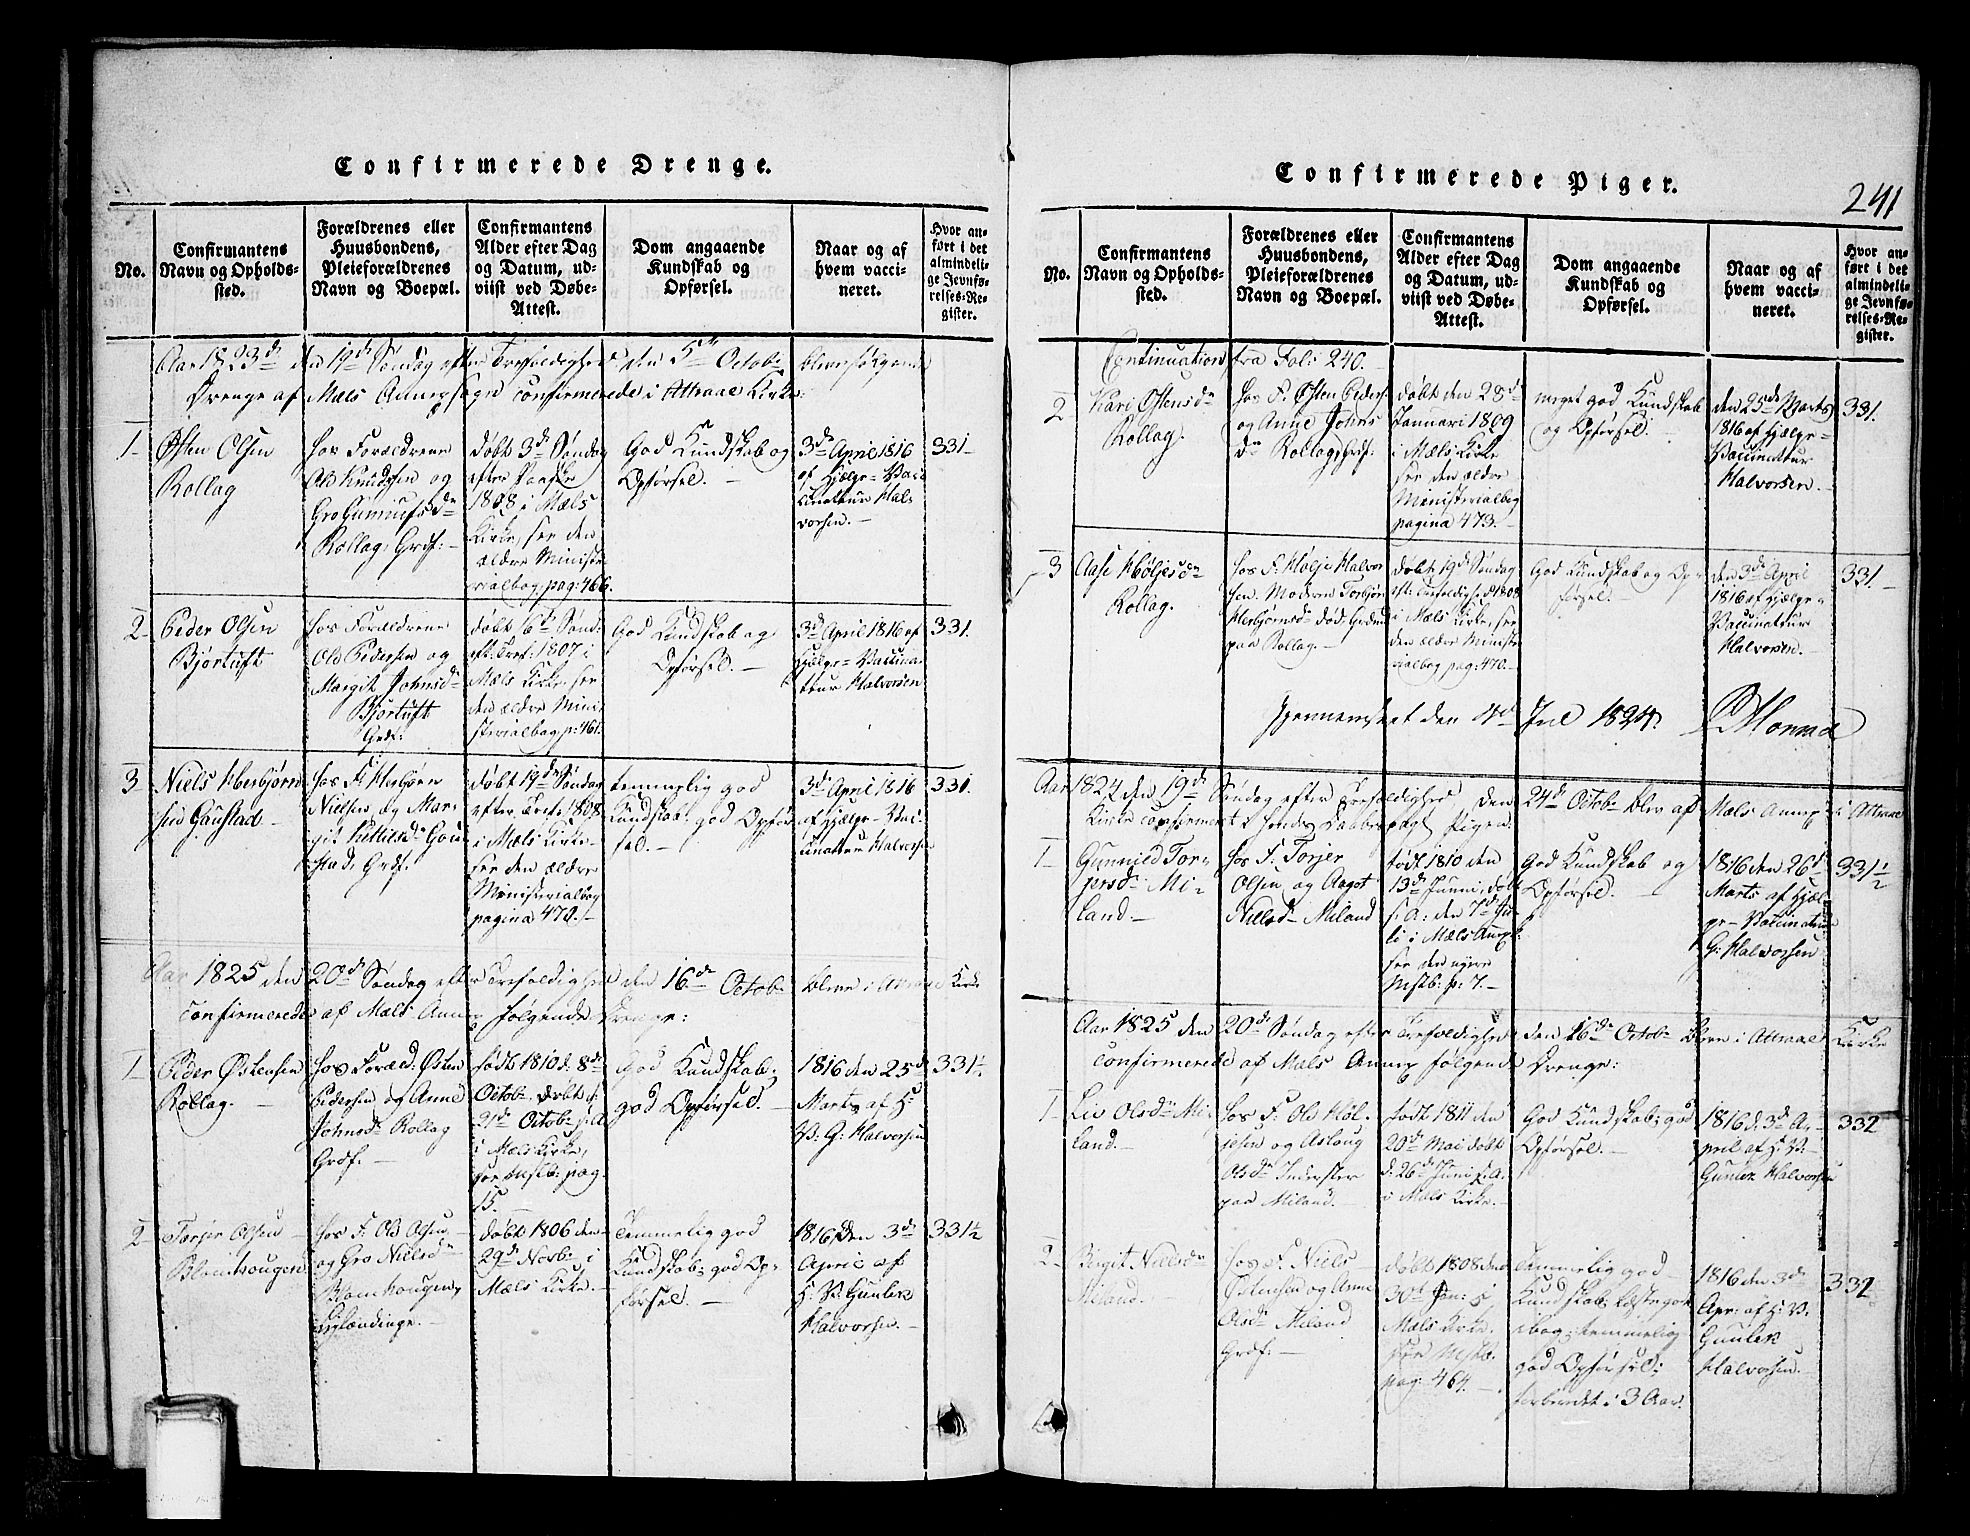 Confirmerede Drenge.
No.
Confirmantens
Navn og Opholds-
sted.
Forældrenes eller
Huusbondens,
Pleieforældrenes
Navn og Boepæl.
Confirmantens
Alder efter Dag
og Datum, ud-
viist ved Døbe-
Attest.
Dom angaaende
Kundskab og
Opførsel.
Naar og af
hvem vacci-
neret.
Hvor an-
ført i det
almindeli-
ge Jevnfø-
relses-Re-
gister.
Aar 1823 den 19de Søndag efter Trefoldighed den 5te Octobr blev følgende
Drenge af Mæls Annexsogn confirmerede i Attraae Kirke:
1
Østen Olsen
Rollag
hos Forældrene
Ole Knudsen og
Gro Gunnulfsdr
Rollag, Grdf:
døbt 3de Søndag
efter Paaske
1808 i Mæls
Kirke, see den
ældre Ministe
rialbog, pag: 466.
God Kundskab og
Opførsel.
3de April 1816
af Hjælpe-Vac
cinatteur Hal-
vorsen.
331
2
Peder Olsen
Bjørtuft
hos Forældrene
Ole Pedersen og
Margit Johnsdr
Bjørtuft
Grdf:
døbt 6te Sønd:
eft: Tref: 1807 i
Mæls Kirke, see
den ældre Mini
sterialbog, p: 461.
God Kundskab og
Opførsel.
3de April 1816 af
Hjælpe-Vaccina
teur Halvorsen
331.
3
Niels Herbjørn
sen Gaustad
hos F: Herbjørn
Nielsen og Mar-
git Kittilsdr Gau
stad, Grdf.
døbt 19de Søndag
efter Tref: 1808
i Mæls Kirke
see den ældre
Ministerialbog
pagina 470.
temmelig god
Kundskab. god Opfør
sel.
3de April 1816
af Hjælpe-Vac
cinatteur Halvorsen
331.
Aar 1825 den 20de Søndag efter Trefoldighed den 16de Octobr bleve i Attraae Kirke
confirmerede af Mæls Annex følgende Drenge:
1
Peder Østensen
Rollag.
hos Foræld: Østen
Pedersen og Anne
Johnsdr Rollag
Grdf.
født 1810 d. 8de
Octobr døbt d:
21de Octobr s: A
i Mæls Kirke,
see Mstb: pag.
15.
God Kundskab;
god Opførsel.
1816 den 25de
Marts af H:
V: G: Halvorsen
331½
2
Torjer Olsen
Blomhougen
hos F: Ole Olsen
og Gro Nielsdr
Blomhougen,
døbt 1806 den
29de Novbr i
Mæls Kirke.
Temmelig god
Kundskab; god Op-
førsel.
1816 den 3de
April af
H: V: Gunlek
Halvorsen.
331½
Confirmerede Piger.
241
No.
Confirmantens
Navn og Opholds-
sted.
Forældrenes eller
Huusbondens,
Pleieforældrenes
Navn og Boepæl.
Confirmantens
Alder efter Dag
og Datum, ud-
viist ved Døbe-
Attest.
Dom angaaende
Kundskab og
Opførsel.
Naar og af
hvem vacci-
neret.
Hvor an-
ført i det
almindeli-
ge Jevnfø-
relses-Re-
gister.
Continuation fra Fol: 240.
2
Kari Østensdr
Rollag.
hos F. Østen Peders
og Anne Johns
dr Rollag, Grdf:
døbt den 28de
Januari 1809
i Mæls Kirke
see den ældre
Ministerialbog
pagina 473.
meget god Kundskab
og Opførsel.
den 25de Marts
1816 af Hjælpe-
Vaccinatteur
Halvorsen.
331.
3
Aase Høljesdr
Rollag.
hos F. Hølje Halvor
sen. Moderen Torbjør
Herbjørnsdr død. Grdmd
paa Rollag.
døbt 19de Søndag
eft: Trefoldighed 1808
i Mæls Kirke, see
den ældre Ministe
rialbog pag: 470.
God Kundskab og Op-
førsel.
den 3de April
1816 af Hjælpe-
Vaccinatteur
Halvorsen.
331.
Gjennemseet den 4de Jul 1824. Monrad
Aar 1824 den 19de Søndag efter Trefoldighed den 24de Octobr blev af Mæls Annex i Attraae
Kirke confirmeret Pigen:
1
Gunnild Tor-
jersdr Mi-
land.
hos F. Torjer
Olsen og Aagot
Nielsdr Miland
født 1810 den
13de Junni, døbt
s: A: den 7de Ju
li i Mæls Annex
see den nyere
Mstb: p: 7.
God Kundskab og
Opførsel.
1816 den 26de
Marts af Hjæl
pe-Vaccinateur
G: Halvorsen
331½
Aar 1825 den 20de Søndag efter Trefoldighed den 16de Octobr bleve i Attraae Kirke
confirmerede af Mæls Annex følgende Drenge:
1
Liv Olsdr Mi-
land.
hos F: Ole Høl-
jesen og Aslaug
Olsdr Inderster
paa Miland.
født 1811 den
20de Mai døbt
d: 26de Juni s. A.
i Mæls Kirke.
God Kundskab; god
Opførsel.
1816 d. 3de A-
pril af H: V:
Gunlek Halvorsen
332
2
Birgit Nielsdr
Miland.
hos F. Niels
Østensen og Anne
Olsdr Miland
Grdf:
døbt 1808 den
30te Jan: i
Mæls Kirke.
see Mstb.
pag: 464.
Temmelig god
Kundskab;
temmelig
god Opførsel;
forberedet i 3 Aar.
1816 den 3de
Apr: af H: V:
Gunlek
Halvorsen.
332